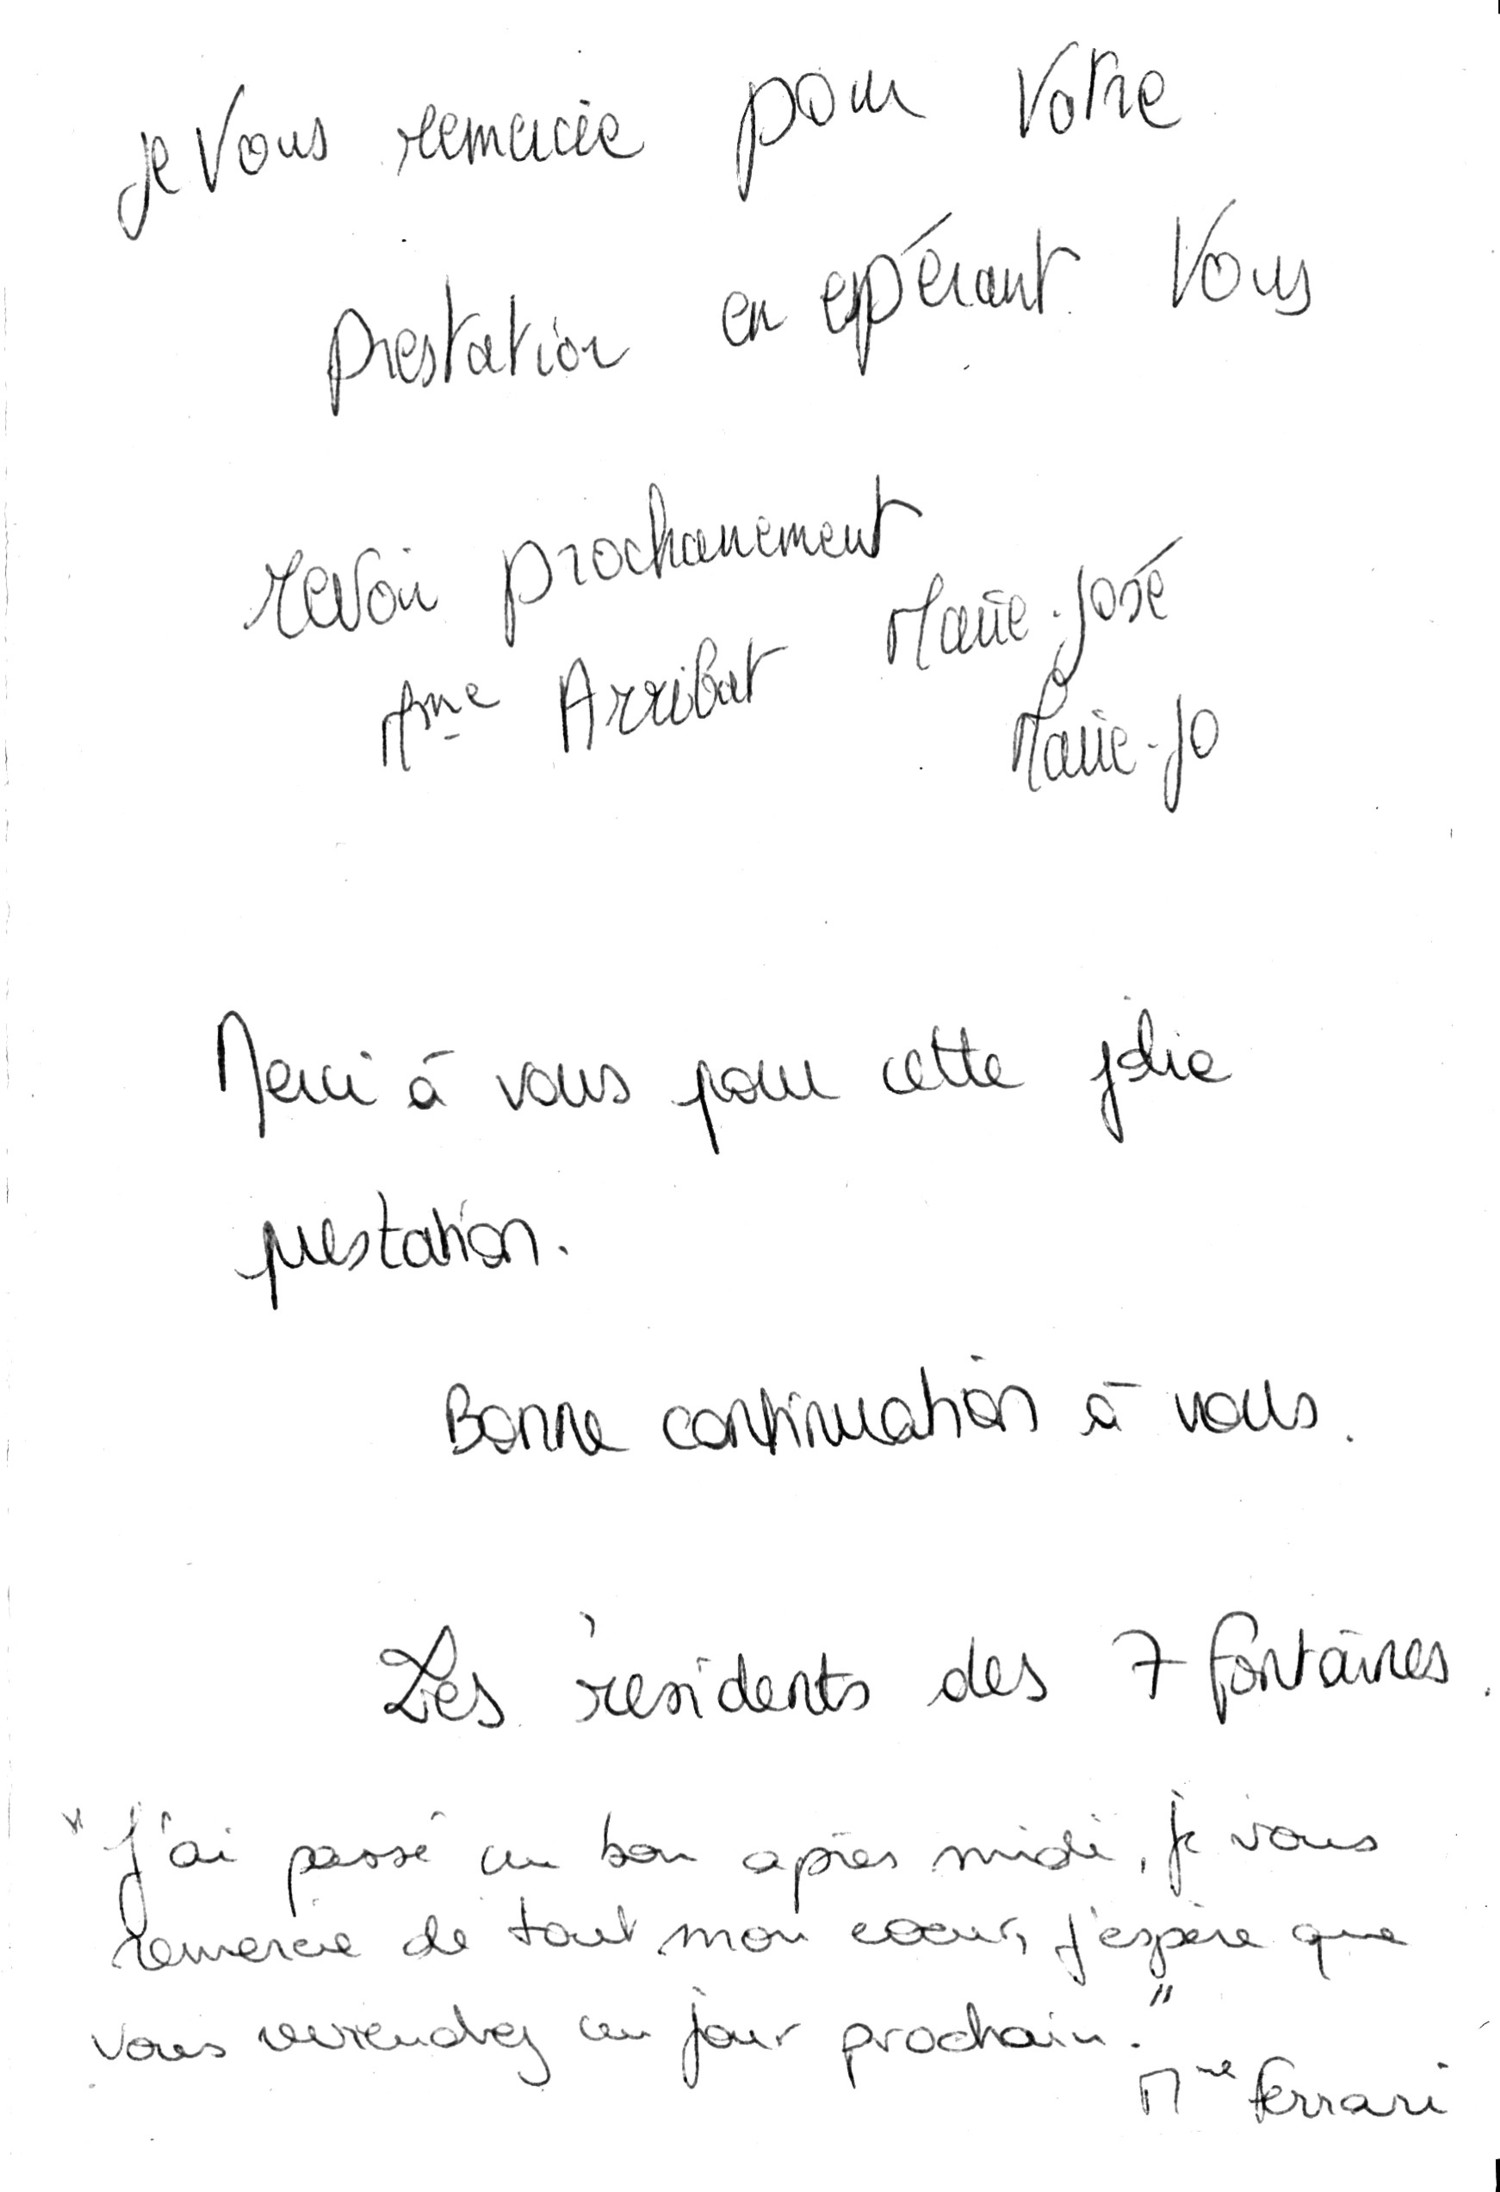 je Vous remercie pour Votre
prestation en espérant Vous
revoir prochainement
Mme Arribat Marie-José
Marie-Jo
Merci à vous pour cette jolie
prestation.
Bonne continuation à vous.
Les résidents des 7 fontaines.
"J'ai passé un bon après midi, je vous
remercie de tout mon coeur, j'espère que
vous reviendrez un jour prochain."
Mme Ferrari